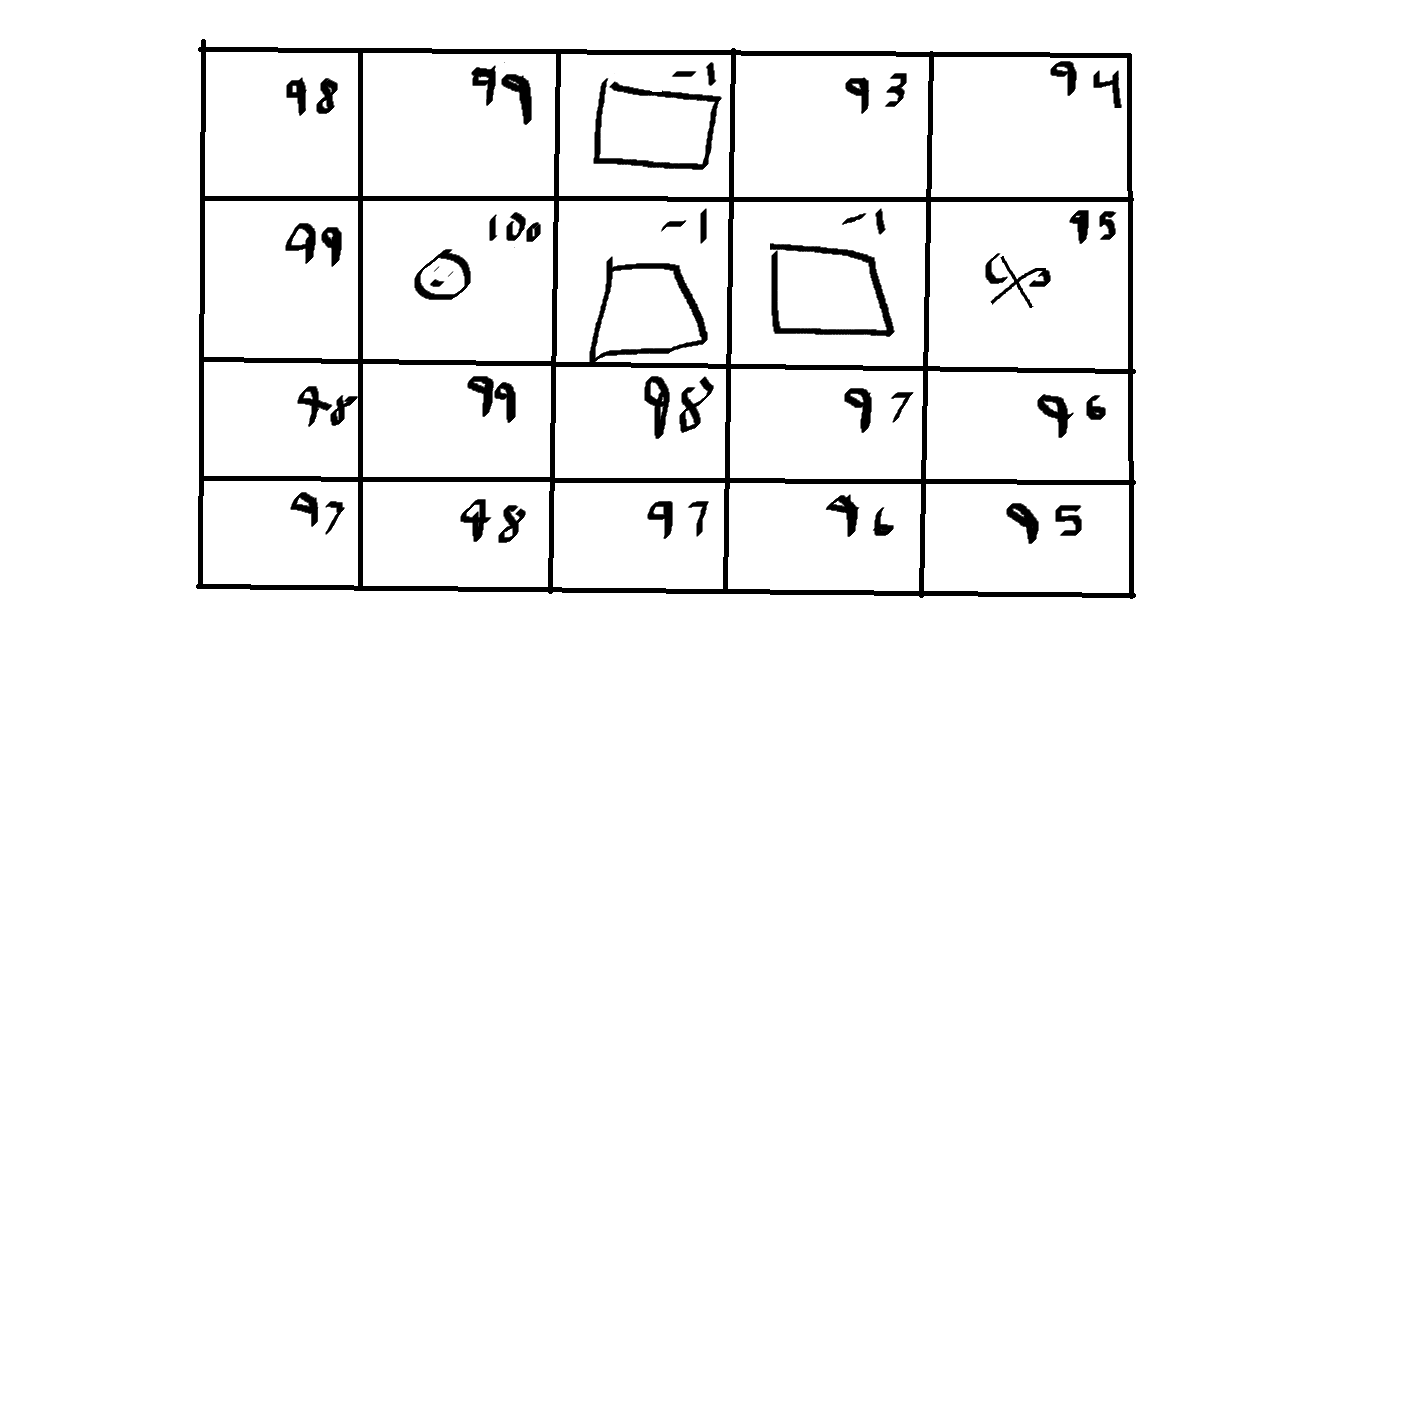 98 99 -1 93 94
99 100 -1 -1 95
98 99 98 97 96
97 98 97 96 95